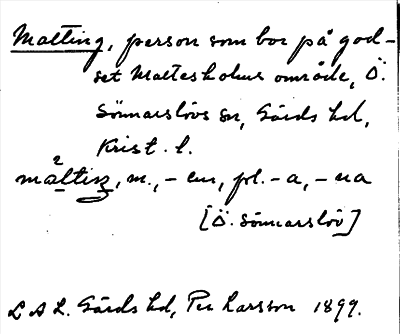 Malting, person som bor på god-
set Maltesholms område, Ö.
Sönnarslövs sn, Gärds hd,
Krist. l.
maltiŋ, m., -en, pl. -a, -na
[Ö. Sönnarslöv]
LAL. Gärds hd, Per Larsson 1899.